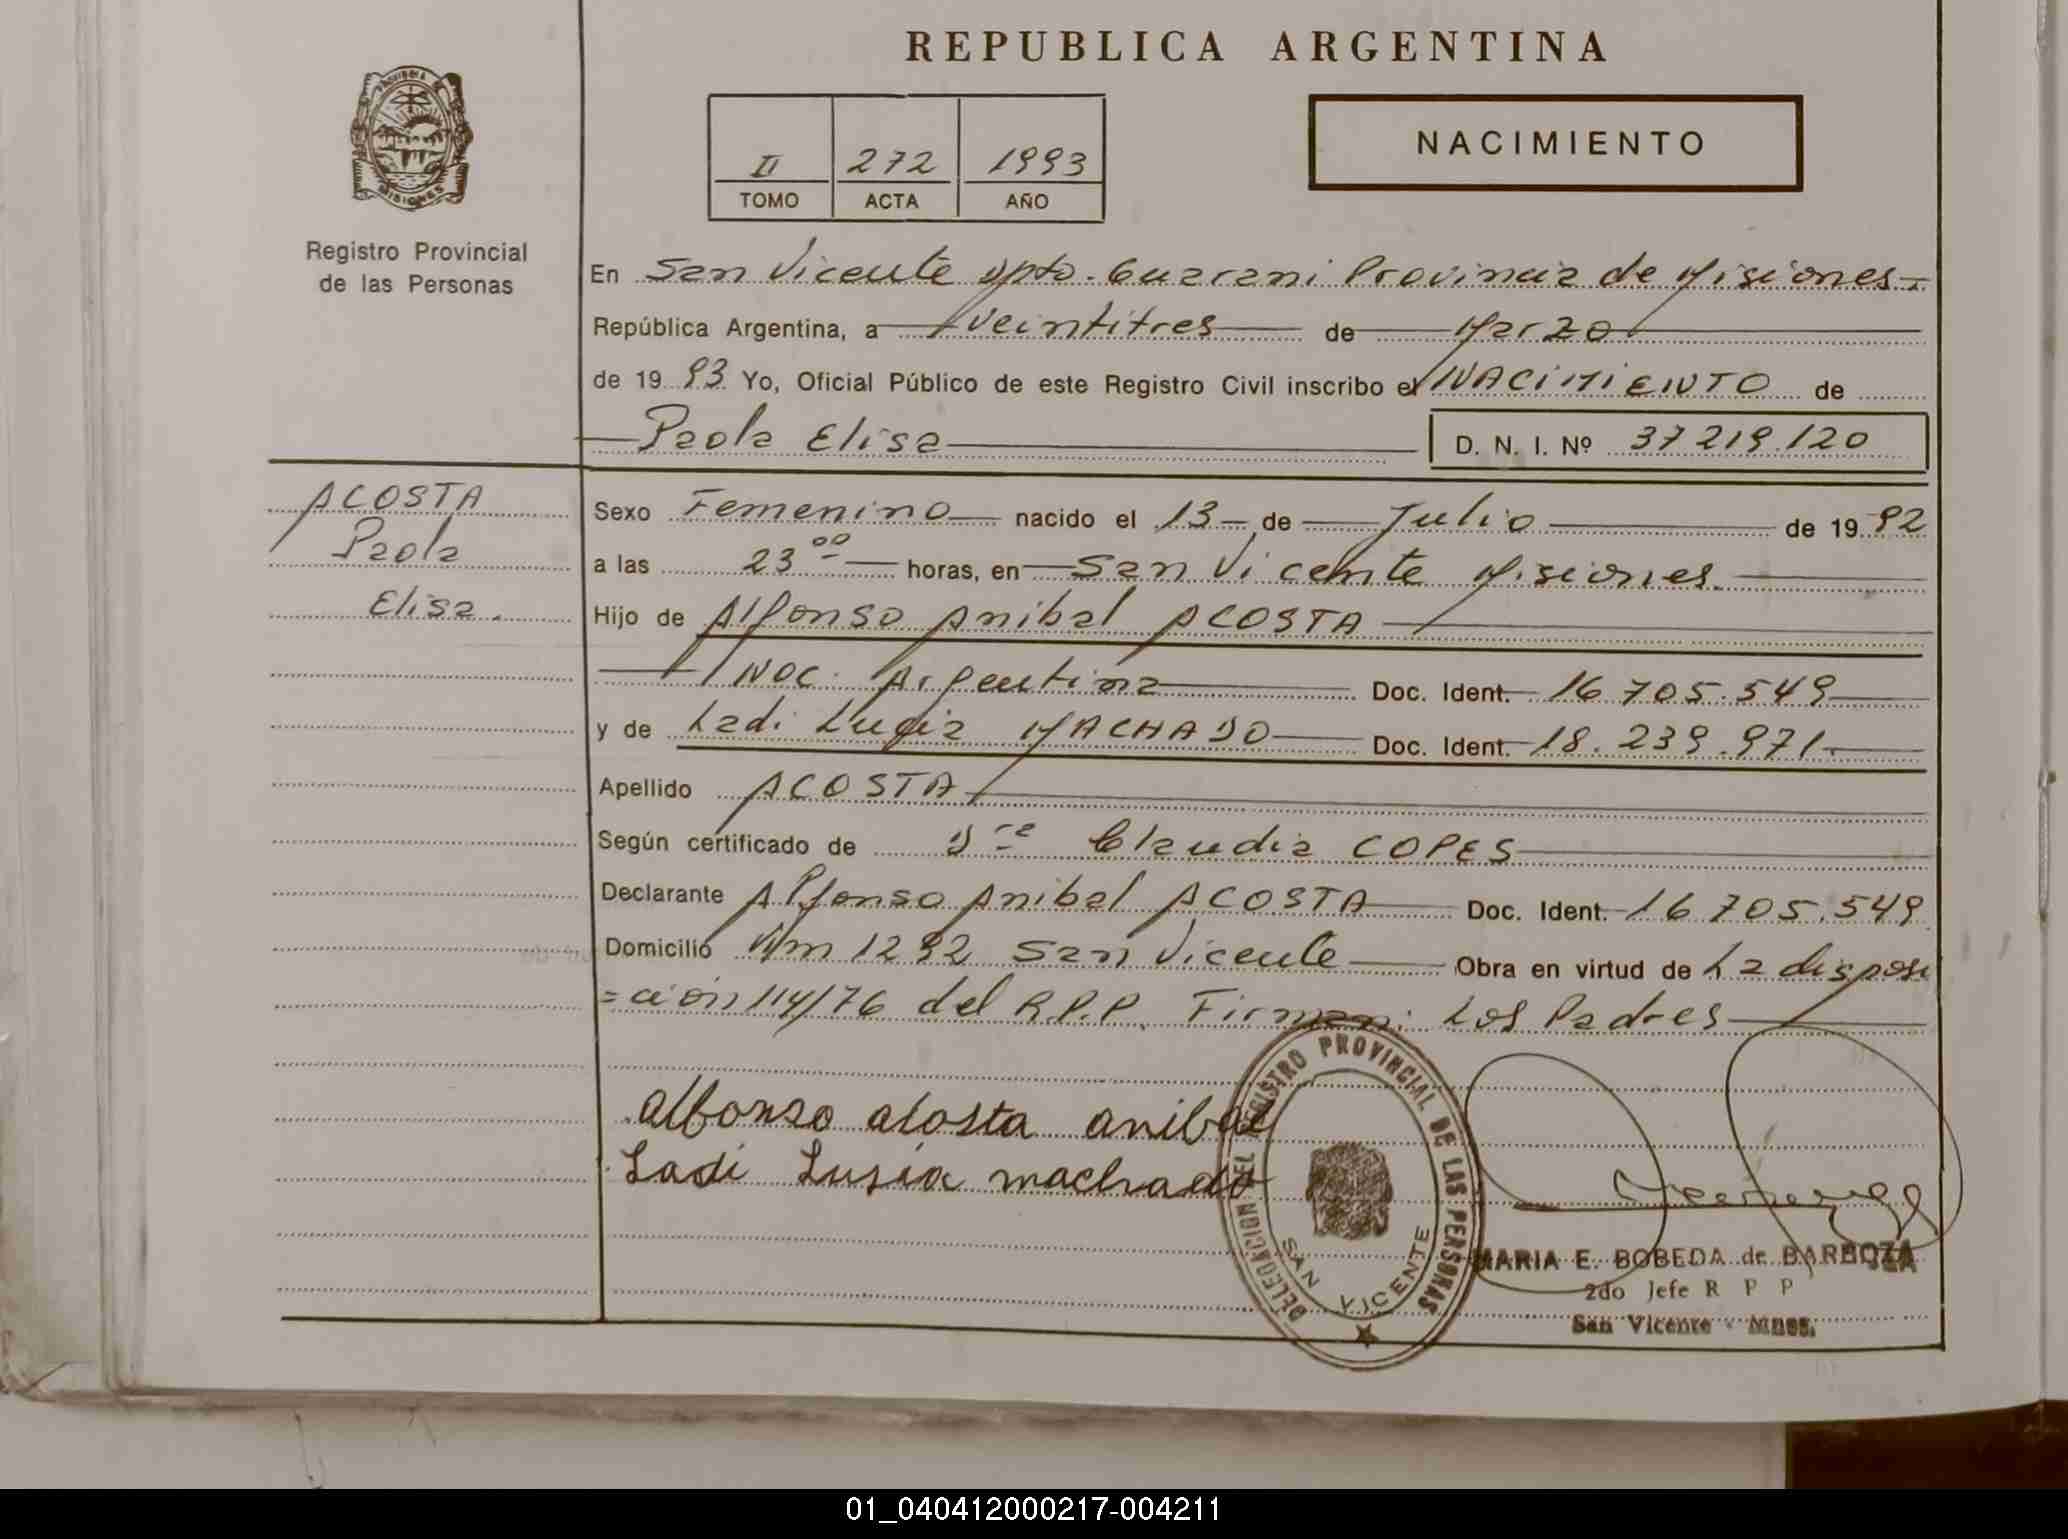 REPUBLICA ARGENTINA
II 272 1993
TOMO ACTA AÑO
NACIMIENTO
PROVINCIA
MISIONES
Registro Provincial
de las Personas
En San Vicente Dpto. Guarani Provincia de Misiones.
República Argentina, a Veintitres de Marzo
de 1993 Yo, Oficial Público de este Registro Civil inscribo el NACIMIENTO de
Paola Elisa D. N. I. Nº 37219.120
ACOSTA
Paola
Elisa.
Sexo Femenino nacido el 13 de Julio de 1992
a las 23 00 horas, en San Vicente Misiones
Hijo de Alfonso Anibal ACOSTA
Nac. Argentina Doc. Ident. 16.705.549
y de Ladi Lucia MACHADO Doc. Ident. 18.239.971
Apellido ACOSTA
Según certificado de Dra Claudia COPES
Declarante Alfonso Anibal ACOSTA Doc. Ident. 16.705.549
Domicilio Km 1292 San Vicente Obra en virtud de La disposi
=ción 114/76 del R.P.P. Firman: Los Padres
alfonso acosta anibal
Ladi Lusia machado
DELEGACION DEL REGISTRO PROVINCIAL DE LAS PERSONAS
SAN VICENTE
MARIA E. BOBEDA de BARBOZA
2do Jefe R P P
San Vicente - Mnes.
01_040412000217-004211